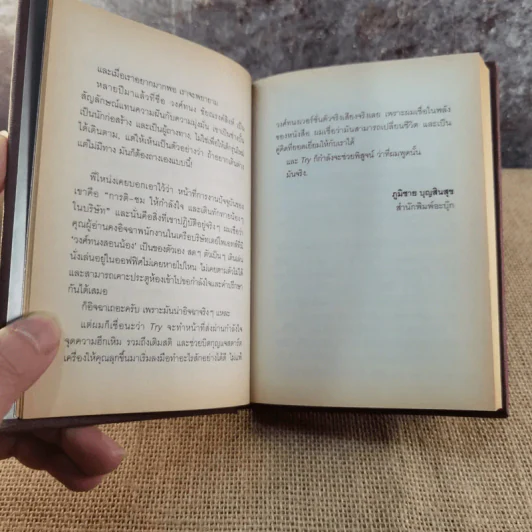 และเมื่อเราอยากมากพอ เราจะพยายาม
หลายปีมาแล้วที่ชื่อ วงศ์ทนง ชัยณรงค์สิงห์ เป็น
สัญลักษณ์แทนความฝันกับความมุ่งมั่น เขาเป็นช่างปั้น
เป็นนักก่อสร้าง และเป็นผู้ถางทาง ไม่ใช่เพื่อให้คนรุ่นใหม่
ได้เดินตาม แต่ให้เห็นเป็นตัวอย่างว่า ถ้าอยากเดินทาง
แต่ไม่มีทาง มันก็ต้องถางเองแบบนี้!
พี่โหน่งเคยบอกเอาไว้ว่า หน้าที่การงานปัจจุบันของ
เขาคือ “การติ-ชม ให้กำลังใจ และเดินทักทายน้องๆ
ในบริษัท” และนั่นคือสิ่งที่เขาปฏิบัติอยู่จริงๆ ผมเชื่อว่า
คุณผู้อ่านคงอิจฉาพนักงานในเครือบริษัทเดย์โพเอทส์ที่มี
‘วงศ์ทนงสอนน้อง’ เป็นของตัวเอง สดๆ ตัวเป็นๆ เดินเล่น
นั่งเล่นอยู่ในออฟฟิศไม่เคยหายไปไหน ไม่เคยตามตัวไม่ได้
และสามารถเคาะประตูห้องเข้าไปขอกำลังใจและคำปรึกษา
กันได้เสมอ
ก็อิจฉาเถอะครับ เพราะมันน่าอิจฉาจริงๆ แหละ
แต่ผมก็เชื่อนะว่า Try จะทำหน้าที่ส่งผ่านกำลังใจ
จุดความฮึกเหิม รวมถึงเติมสติ และช่วยบิดกุญแจสตาร์ต
เครื่องให้คุณลุกขึ้นมาเริ่มลงมือทำอะไรสักอย่างได้ดี ไม่แพ้
วงศ์ทนงเวอร์ชั่นตัวจริงเสียงจริงเลย เพราะผมเชื่อในพลัง
ของหนังสือ ผมเชื่อว่ามันสามารถเปลี่ยนชีวิต และเป็น
คู่คิดที่ยอดเยี่ยมให้กับเราได้
และ Try ก็กำลังจะช่วยพิสูจน์ ว่าที่ผมพูดนั้น
มันจริง.
ภูมิชาย บุญสินสุข
สำนักพิมพ์อะบุ๊ก